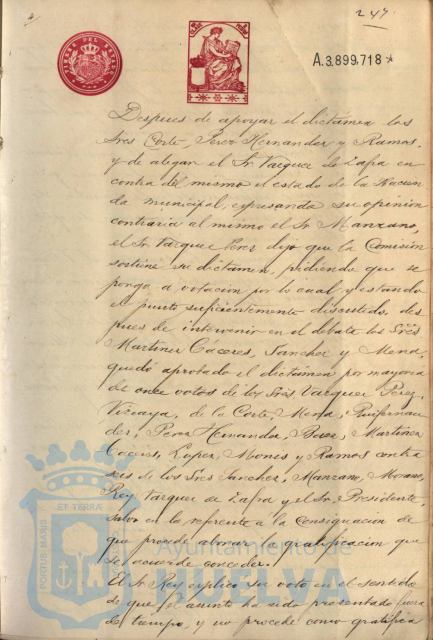 247.
A.3.899,718*
TIMBRE DEL ESTADO
Despues de apoyar el dictámen los
Sres Corte, Perez Hernandez y Ramos,
y de alegar el Sr Vazquez de Zafra en
contra del mismo el estado de la Hacien
da municipal, expresando su opinión
contraria al mismo el Sr Manzano,
el Sr Vazquez Perez dijo que la Comisión
sostiene su dictamen, pidiendo que se
ponga a votación por lo cual, y estando
el punto suficientemente discutido, des
pues de intervenir en el debate los Sres
Martinez Cáceres, Sanchez y Mena,
quedó aprobado el dictámen por mayoria
de once votos de los Sres Vazquez Perez,
de la Corte, Mena,
Perez Hernandez, Martinez
Caceres, Lopez, Mones y Ramos contra
seis de los Sres Sanchez, Manzano, Moreno,
Rey, Vazquez de Zafra y el Sr. Presidente,
salvo en lo referente a la Consignacion de
que procede abonar la gratificacion que
se acuerde conceder.
El Sr Rey explicó su voto en el sentido
de que el asunto ha sido presentado fuera
de tiempo, y no procede como gratifica
ET TERRÆ
PORTUS MARIS
Ayuntamiento de
HUELVA